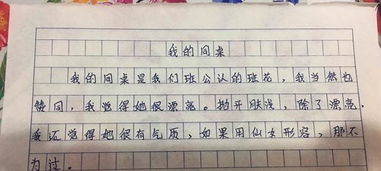 我的同桌
我的同桌是我们班公认的班花，我当然也
赞同，我觉得她很漂亮。抛开肤浅，除了漂亮，
我还觉得她很有气质，如果用仙女形容，那不
为过。